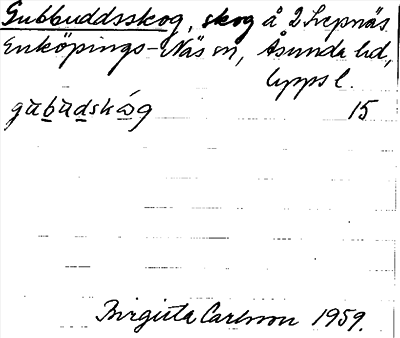 Gubbuddsskog, skog å 2 Svepnäs
Enköpings-Näs sn, Åsunda hd,
Upps l.
gubudskog 15
Birgitta Carlsson 1959.